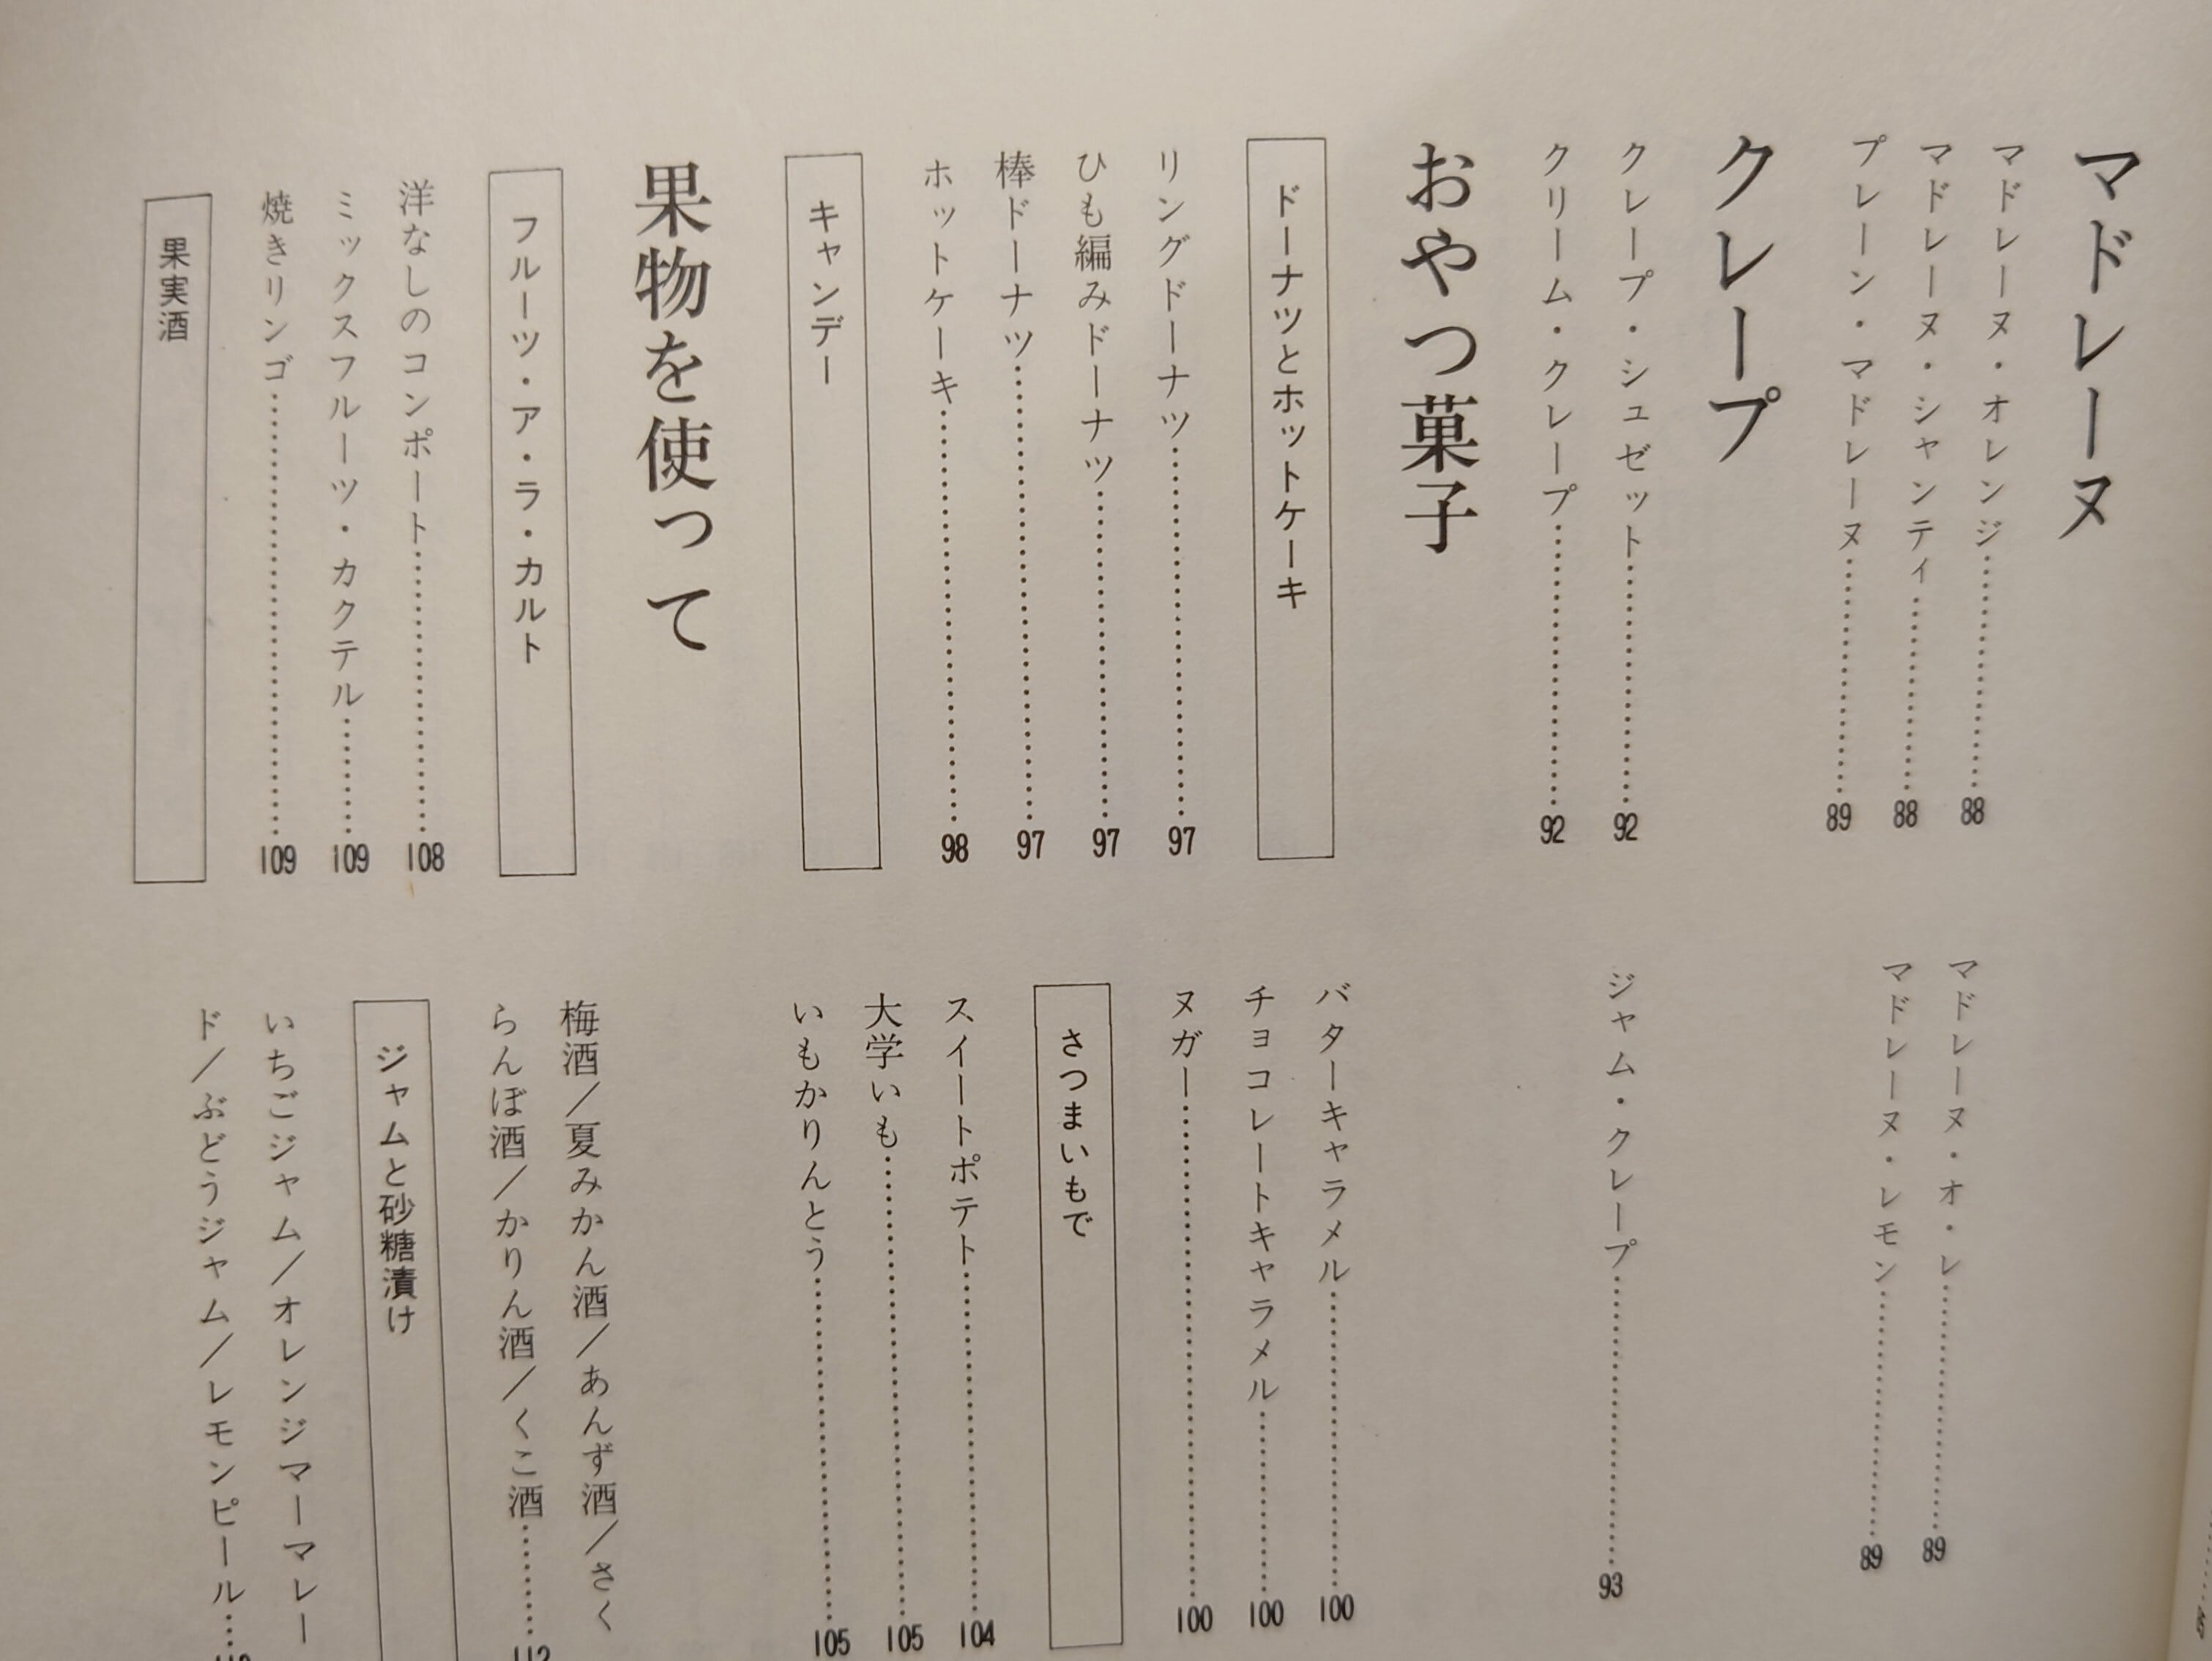 マドレーヌ
マドレーヌ・オレンジ……88
マドレーヌ・シャンティ……88
プレーン・マドレーヌ……89
マドレーヌ・オ・レ……89
マドレーヌ・レモン……89
クレープ
クレープ・シュゼット……92
クリーム・クレープ……92
ジャム・クレープ……93
おやつ菓子
ドーナツとホットケーキ
リングドーナツ……97
ひも編みドーナツ……97
棒ドーナツ……97
ホットケーキ……98
キャンデー
バターキャラメル……100
チョコレートキャラメル……100
ヌガー……100
さつまいもで
スイートポテト……104
大学いも……105
いもかりんとう……105
果物を使って
フルーツ・ア・ラ・カルト
洋なしのコンポート……108
ミックスフルーツ・カクテル……109
焼きリンゴ……109
果実酒
梅酒／夏みかん酒／あんず酒／さく
らんぼ酒／かりん酒／くこ酒……112
ジャムと砂糖漬け
いちごジャム／オレンジマーマレー
ド／ぶどうジャム／レモンピール…